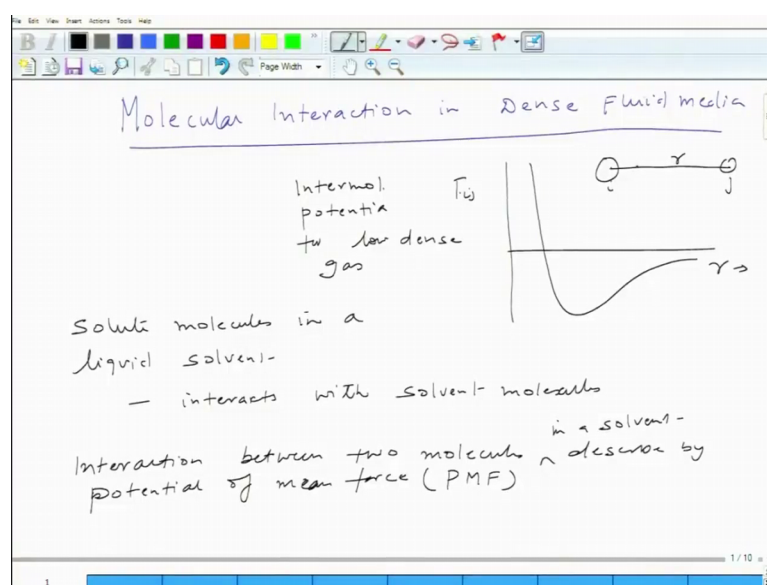 File Edit View Insert Actions Tools Help
B I
Page Width
Molecular Interaction in Dense Fluid media
Intermol.
potential
tw low dense
gas
Γij
r
i
j
r →
Solute molecules in a
liquid solvent
— interacts with solvent molecules
in a solvent
Interaction between two molecules ^ describe by
potential of mean force (PMF)
1 / 10
1